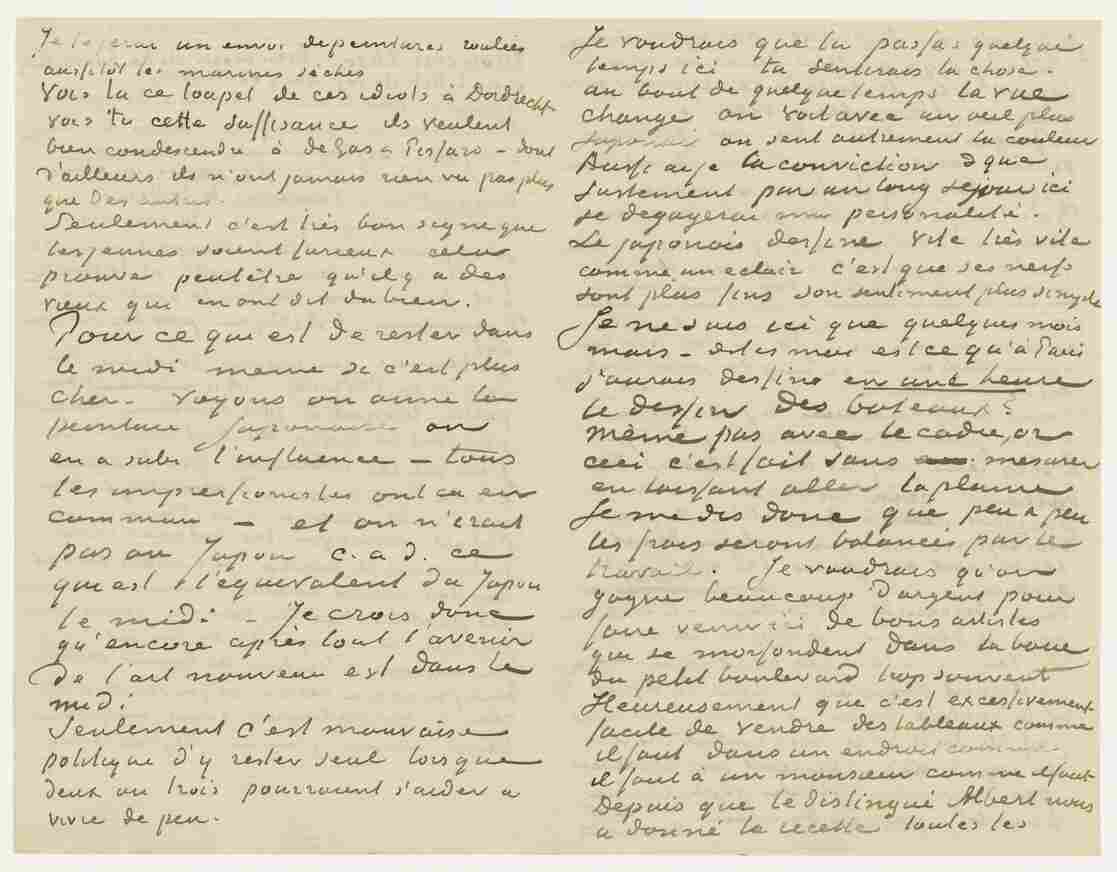 Je te ferai un envoi de peintures roulées
aussitôt les marines sèches
Vois tu ce toupet de ces idiots à Dordrecht
vois tu cette suffisance ils veulent
bien condescendre à de Gas & Pissaro – dont
d'ailleurs ils n'ont jamais rien vu pas plus
que des autres.
Seulement c'est très bon signe que
les jeunes soient furieux cela
prouve peutêtre qu'il y a des
vieux qui en ont dit du bien.
Pour ce qui est de rester dans
le midi meme si c'est plus
cher – Voyons on aime la
peinture Japonaise on
en a subi l'influence – tous
les impressionistes ont ca en
commun – et on n'irait
pas au Japon c.à d. ce
qui est l'équivalent du Japon
le midi – Je crois donc
qu'encore après tout l'avenir
de l'art nouveau est dans le
midi
Seulement c'est mauvaise
politique d'y rester seul lorsque
deux ou trois pourraient s'aider à
vivre de peu.
Je voudrais que tu passas quelque
temps ici tu sentirais la chose.
au bout de quelque temps la vue
change on voit avec un oeil plus
Japonais on sent autrement la couleur
Aussi ai je la conviction que
justement par un long sejour ici
se degagerai ma personalité.
Le japonais dessine vite très vite
comme un eclair c'est que ses nerfs
sont plus fins son sentiment plus simple
Je ne suis ici que quelques mois
mais – dites moi est ce qu'à Paris
j'aurais dessiné en une heure
le dessin des bateaux?
même pas avec le cadre, or
ceci c'est fait sans mesurer
en laissant aller la plume
Je me dis donc que peu à peu
les frais seront balancés par le
travail. Je voudrais qu'on
gagne beaucoup d'argent pour
faire venir ici de bons artistes
qui se morfondent dans la boue
du petit boulevard trop souvent
Heureusement que c'est excessivement
facile de vendre des tableaux comme
il faut dans un endroit comme
il faut à un monsieur comme il faut
Depuis que le distingué Albert nous
a donné la recette toutes les